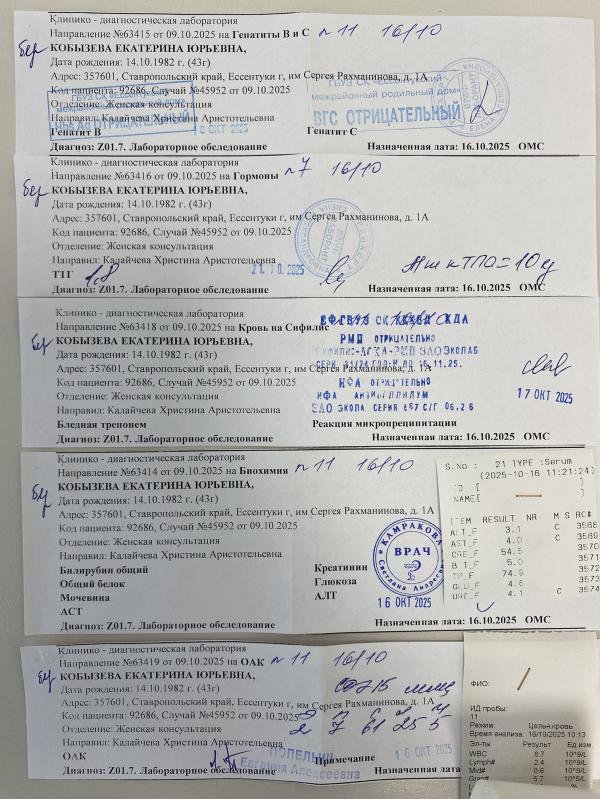 Клинико - диагностическая лаборатория
Направление №63415 от 09.10.2025 на Гепатиты В и С n 11 16/10
бер КОБЫЗЕВА ЕКАТЕРИНА ЮРЬЕВНА,
Дата рождения: 14.10.1982 (43г)
Адрес: 357601, Ставропольский край, Ессентуки г, им Сергея Рахманинова, д. 1А
Код пациента: 92686, Случай №45952 от 09.10.2025
ГБУЗ СК «Ессентукский
межрайонный родильный дом»
Отделение: Женская консультация
Направил: Калайчева Христина Аристотельевна
HBsAg ОТРИЦАТЕЛЬНЫЙ
ВГС ОТРИЦАТЕЛЬНЫЙ
6 ОКТ 2025
Гепатит В Гепатит С
Диагноз: Z01.7. Лабораторное обследование Назначенная дата: 16.10.2025 ОМС
Клинико - диагностическая лаборатория
Направление №63416 от 09.10.2025 на Гормоны n 7 16/10
бер КОБЫЗЕВА ЕКАТЕРИНА ЮРЬЕВНА,
Дата рождения: 14.10.1982 (43г)
Адрес: 357601, Ставропольский край, Ессентуки г, им Сергея Рахманинова, д. 1А
Код пациента: 92686, Случай №45952 от 09.10.2025
Отделение: Женская консультация
Направил: Калайчева Христина Аристотельевна
ТТГ 1,8 21.10.2025 Ат к ТПО = 10 ед
Диагноз: Z01.7. Лабораторное обследование Назначенная дата: 16.10.2025
Клинико - диагностическая лаборатория
Направление №63418 от 09.10.2025 на Кровь на Сифилис
бер КОБЫЗЕВА ЕКАТЕРИНА ЮРЬЕВНА,
РМП ОТРИЦАТЕЛЬНО
Дата рождения: 14.10.1982 (43г)
СИФИЛИС-АГКЛ-РМП ЗАО ЭКОЛАБ
Адрес: 357601, Ставропольский край, Ессентуки г, им Сергея Рахманинова, д. 1А
Код пациента: 92686, Случай №45952 от 09.10.2025
ИФА ОТРИЦАТЕЛЬНО
Отделение: Женская консультация
ИФА АНТИПАЛЛИДУМ
17 ОКТ 2025
Направил: Калайчева Христина Аристотельевна
ЗАО ЭКОЛА СЕРИЯ Е67 С/Г 06.26
Бледная трепонем Реакция микропреципитации
Диагноз: Z01.7. Лабораторное обследование Назначенная дата: 16.10.2025 ОМС
Клинико - диагностическая лаборатория
Направление №63414 от 09.10.2025 на Биохимия n 11 16/10
бер КОБЫЗЕВА ЕКАТЕРИНА ЮРЬЕВНА,
Дата рождения: 14.10.1982 (43г)
Адрес: 357601, Ставропольский край, Ессентуки г, им Сергея Рахманинова, д. 1А
Код пациента: 92686, Случай №45952 от 09.10.2025
Отделение: Женская консультация
Направил: Калайчева Христина Аристотельевна
Билирубин общий Креатинин
Общий белок Глюкоза
Мочевина АЛТ
АСТ
КАМРАКОВА
ВРАЧ
Светлана Андреевна
16 ОКТ 2025
Диагноз: Z01.7. Лабораторное обследование Назначенная дата: 16.10.2025 ОМС
S.No : 21 TYPE :Serum
(2025-10-16 11:21:24)
ID [ ]
NAME[ ]
ITEM RESULT NR M S RC#
ALT_F 3.1 C 3568
AST_F 4.0 C 3569
CRE_F 54.5 3570
BIT_F 5.0 3571
TP_F 74.9 3572
GLU_F 4.6 3573
URE_F 4.1 C 3574
Клинико - диагностическая лаборатория
Направление №63419 от 09.10.2025 на ОАК n 11 16/10
бер КОБЫЗЕВА ЕКАТЕРИНА ЮРЬЕВНА,
Дата рождения: 14.10.1982 (43г) СОЭ 15 мм/ч
Адрес: 357601, Ставропольский край, Ессентуки г, им Сергея Рахманинова, д. 1А
Код пациента: 92686, Случай №45952 от 09.10.2025
2 7 61 25 5
Отделение: Женская консультация
Направил: Калайчева Христина Аристотельевна
16 ОКТ 2025
ОАК Примечание
Евгения Алексеевна
Диагноз: Z01.7. Лабораторное обследование Назначенная дата: 16.10.2025
ФИО:
ИД пробы:
11
Режим: Цельн.кровь
Время анализа: 16/10/2025 10:13
Эл-ты Результ Ед.изм
WBC 8.7 10^9/L
Lymph# 2.4 10^9/L
Mid# 0.6 10^9/L
Gran# 5.7 10^9/L